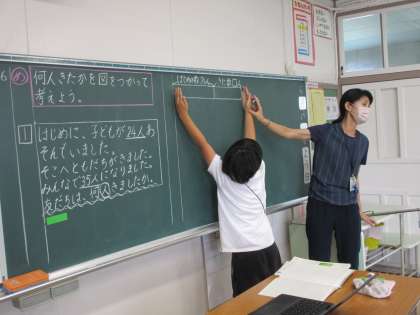 6
め
何人きたかを図をつかって
考えよう。
1
はじめに、子どもが24人あ
そんでいました。
そこへともだちがきました。
みんなで35人になりました。
友だちは、何人きましたか。